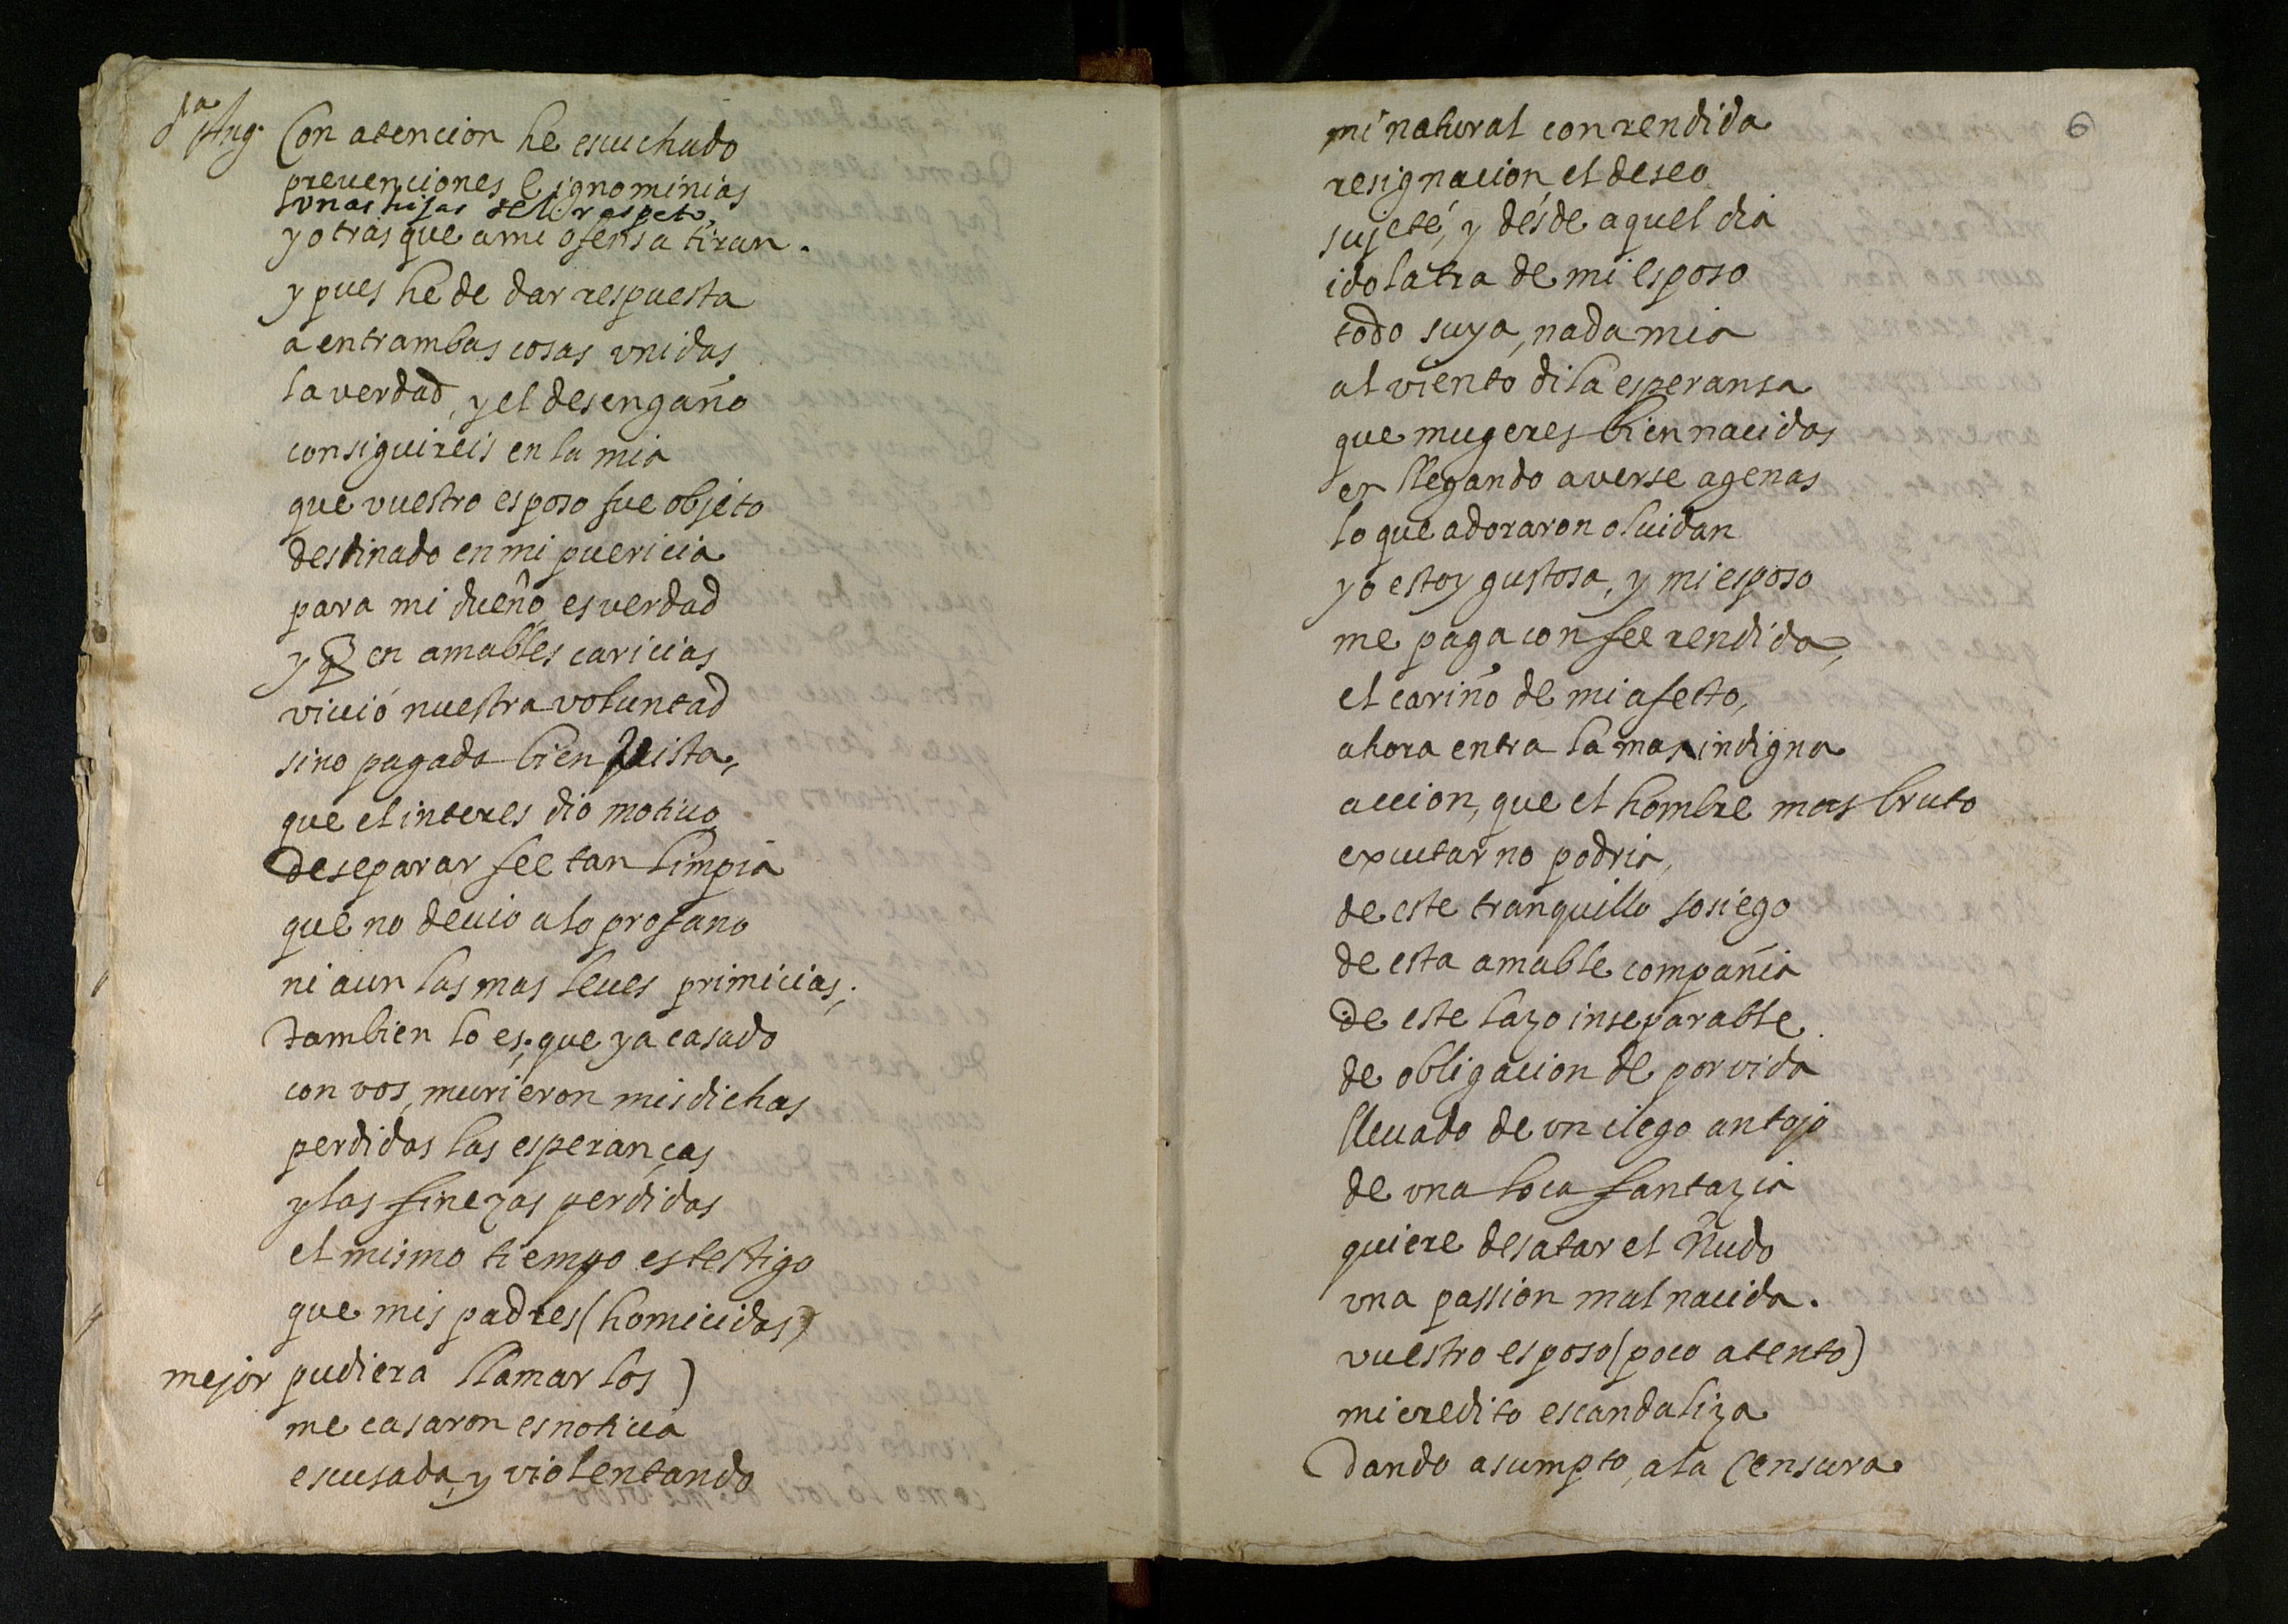 dª Ang. Con atencion he escuchado
prevenciones e ignominias
vnas hijas del respeto,
y otras que a mi ofensa tiran.
y pues he de dar respuesta
a entrambas cosas vnidas
la verdad, y el desengaño
consiguireis en la mia
que vuestro esposo fue objeto
destinado en mi puericia
para mi dueño es verdad
y q en amables caricias
viuió nuestra voluntad
sino pagada bien quista,
que el interes dio motiuo
de separar fee tan limpia
que no deuio a lo profano
ni aun las mas leues primicias;
tambien lo es; que ya casado
con vos, murieron mis dichas
perdidas las esperanças
y las finezas perdidas
el mismo tiempo es testigo
que mis padres (homicidas)
mejor pudiera llamarlos)
me casaron es noticia
escusada, y violentando
6
mi natural con rendida
resignacion el deseo
sujeté, y desde aquel dia
idolatra de mi esposo
todo suya, nada mia
al viento di la esperansa
que mugeres bien nacidas
en llegando a verse agenas
lo que adoraron oluidan
yo estoy gustosa, y mi esposo
me paga con fee rendida,
el cariño de mi afecto,
ahora entra la mas indigna
accion, que el hombre mas bruto
executar no podria,
de este tranquillo sosiego
de esta amable compañia
de este lazo inseparable
de obligacion de por vida
lleuado de vn ciego antojo
de vna loca fantazia
quiere desatar el ñudo
vna passion mal nacida.
vuestro esposo (poco atento)
mi credito escandaliza
dando asumpto, a la Censura